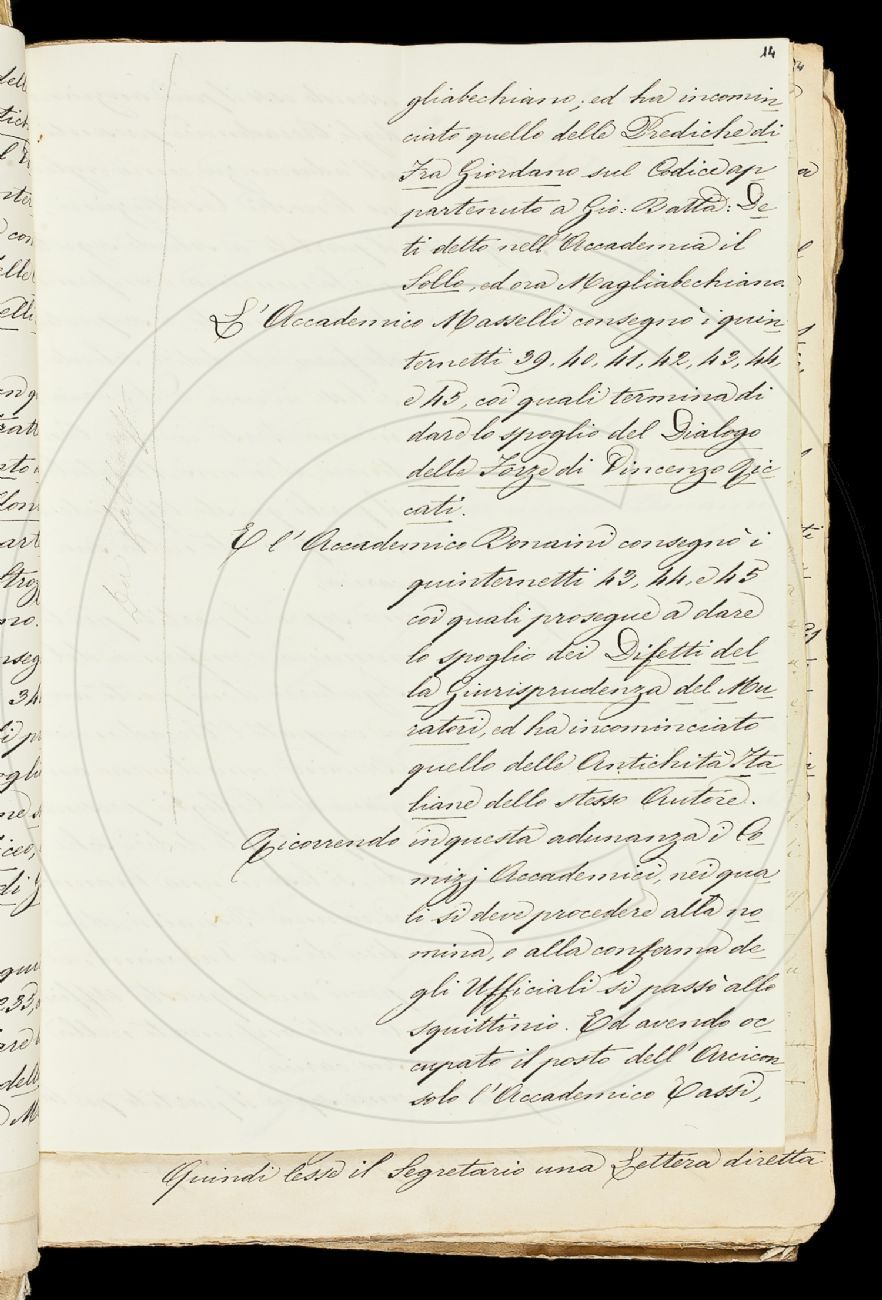 14
gliabechiano, ed ha incomin
ciato quello delle Prediche di
Fra Giordano sul Codice ap
partenuto a Gio: Batta: De
ti detto nell'Accademia il
Sollo, ed ora Magliabechiano.
L'Accademico Masselli consegnò i quin
ternetti 39, 40, 41, 42, 43, 44,
e 45, coi quali termina di
dare lo spoglio del Dialogo
delle Forze di Vincenzo Ric
cati.
E l'Accademico Bonaini consegnò i
quinternetti 43, 44, e 45
coi quali prosegue a dare
lo spoglio dei Difetti del
la Giurisprudenza del Mu
ratori, ed ha incominciato
quello delle Antichità Ita
liane dello stesso Autore.
Ricorrendo in questa adunanza i Co
mizj Accademici, nei qua
li si deve procedere alla no
mina, o alla conferma de
gli Ufficiali si passò allo
squittinio. Ed avendo oc
cupato il posto dell'Arcicon
solo l'Accademico Tassi,
Quindi lesse il Segretario una Lettera diretta